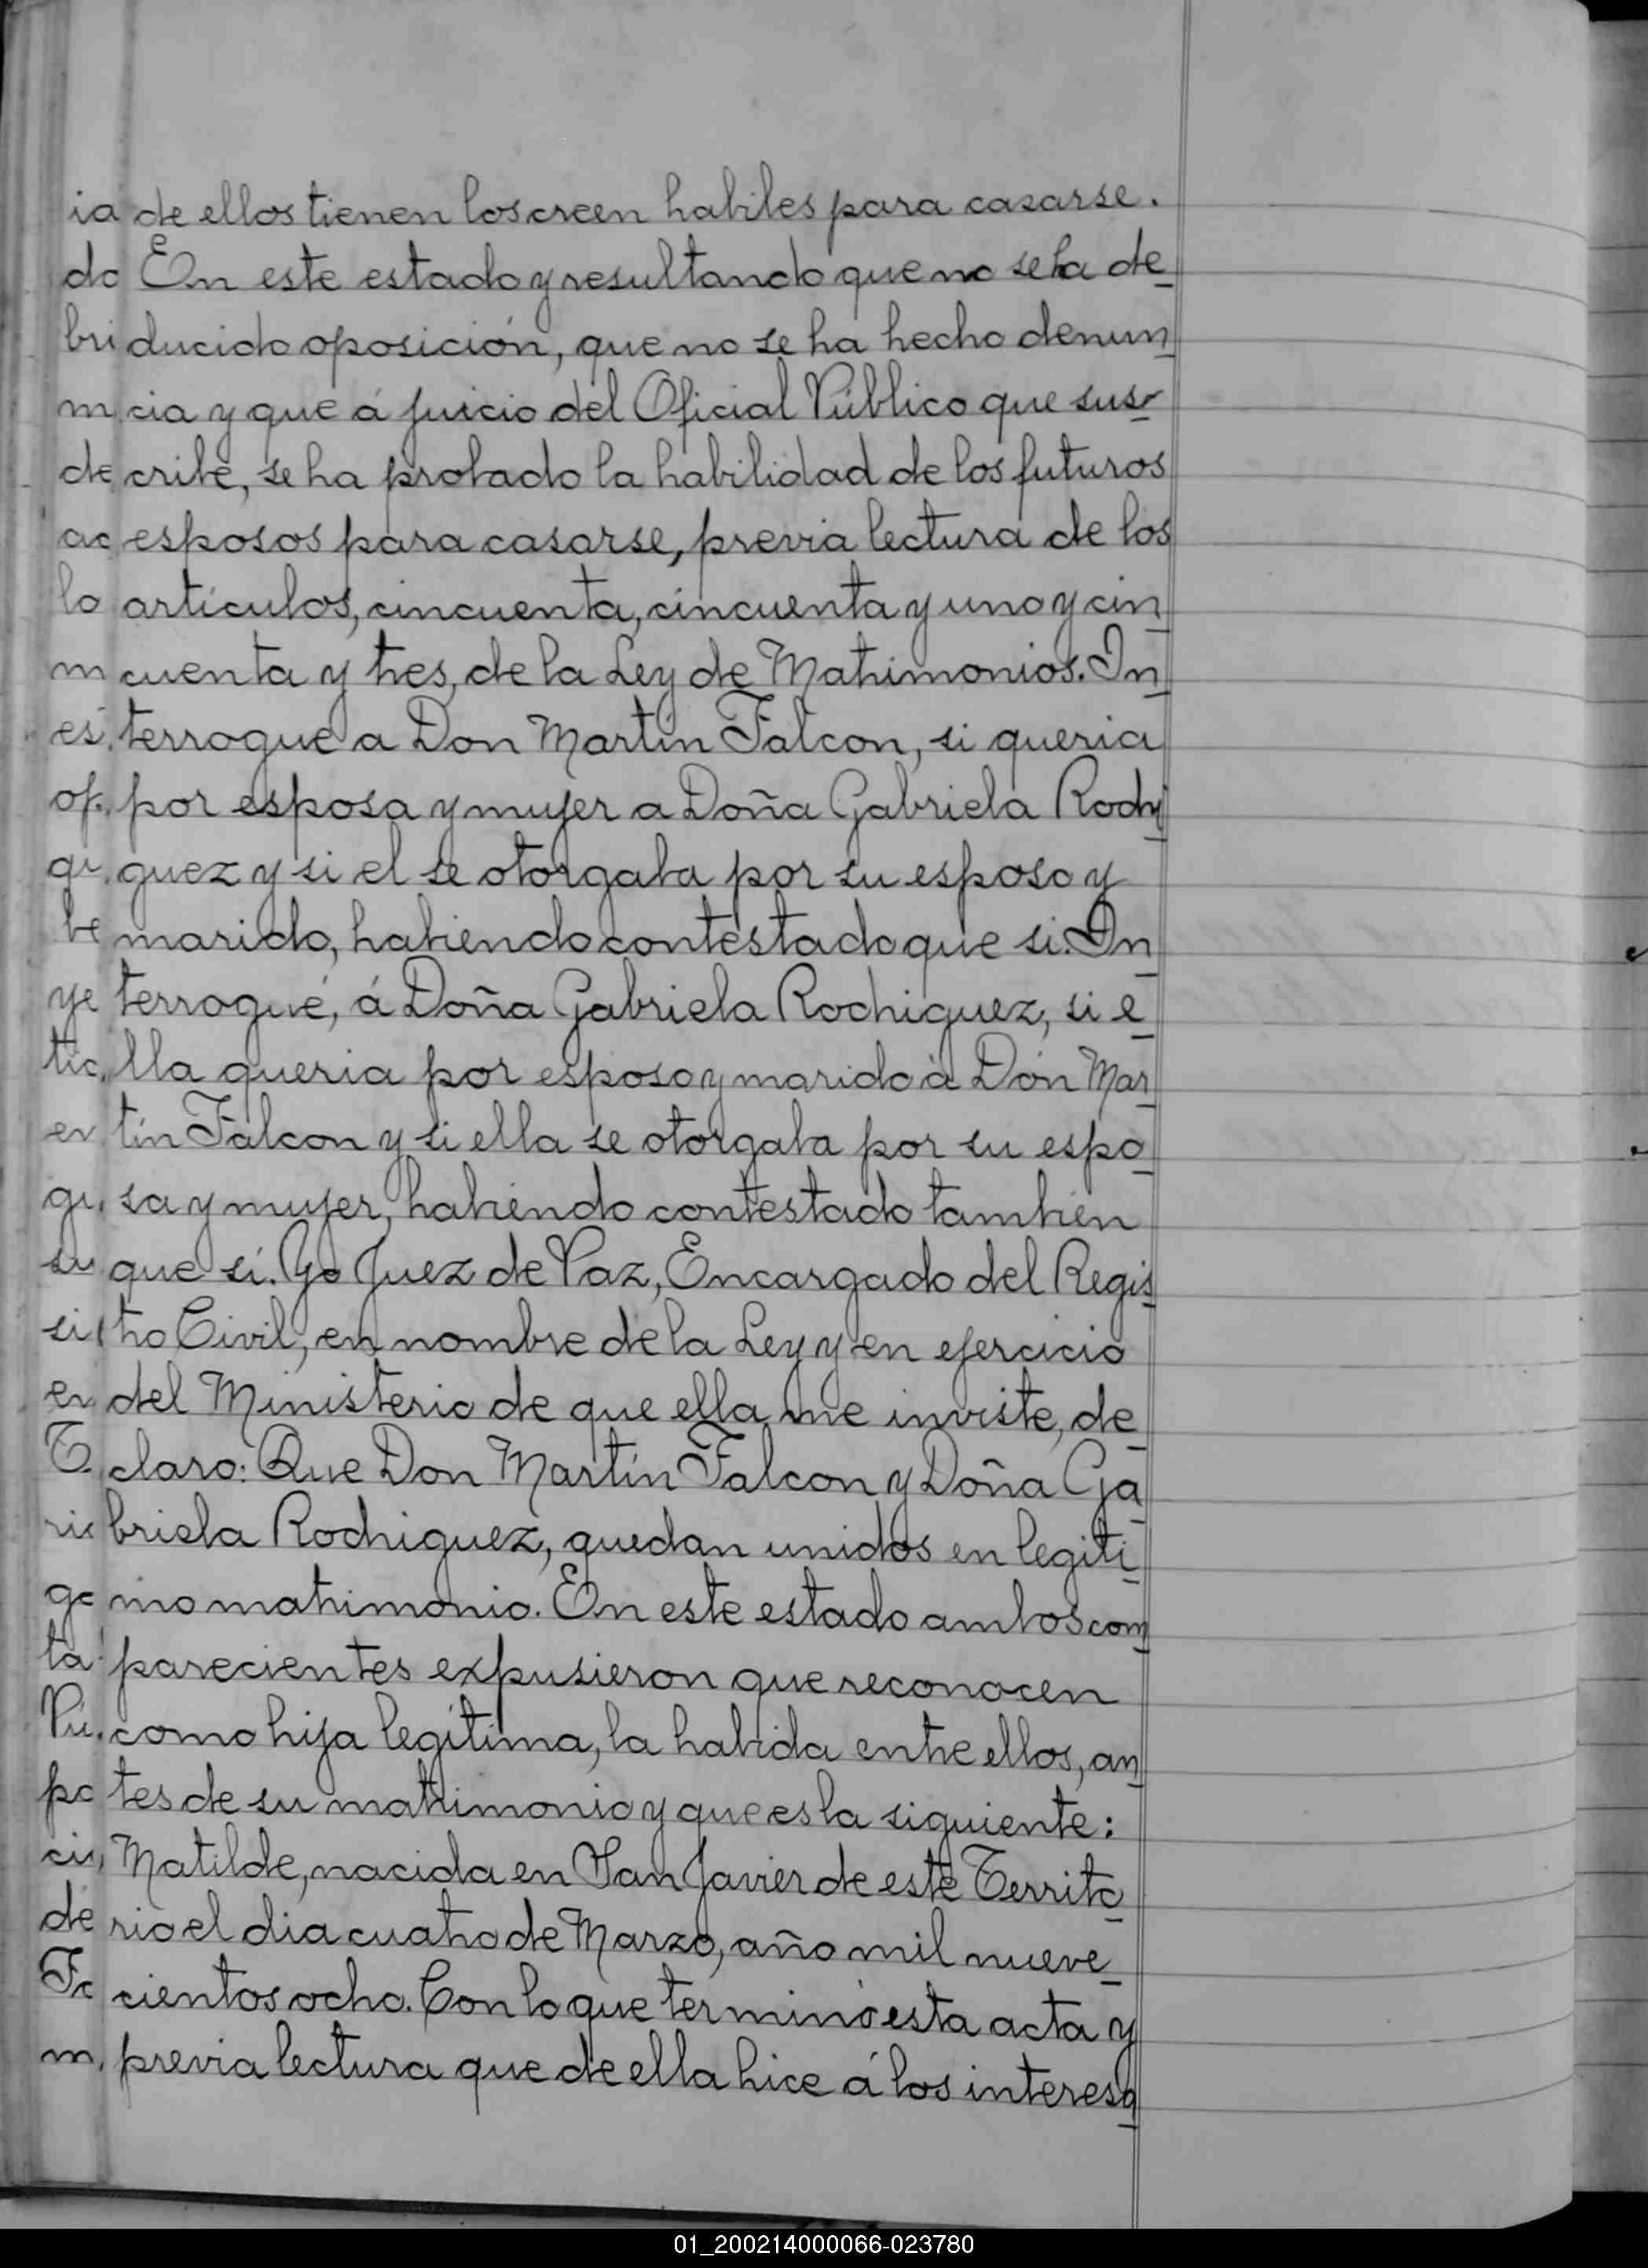 de ellos tienen los creen habiles para casarse.
En este estado y resultando que no se ha de
ducido oposición, que no se ha hecho denun
cia y que á juicio del Oficial Público que sus
cribe, se ha probado la habilidad de los futuros
esposos para casarse, previa lectura de los
artículos, cincuenta, cincuenta y uno y cin
cuenta y tres, de la Ley de Matrimonios. In
terrogué a Don Martín Falcon, si queria
por esposa y mujer a Doña Gabriela Rodri
guez y si el se otorgaba por su esposo y
marido, habiendo contestado que si. In
terrogué, á Doña Gabriela Rodriguez, si e
lla queria por esposo y marido à Don Mar
tín Falcon y si ella se otorgaba por su espo
sa y mujer, habiendo contestado tambien
que sí. Yo Juez de Paz, Encargado del Regis
tro Civil, en nombre de la Ley y en ejercicio
del Ministerio de que ella me inviste, de
claro: Que Don Martín Falcon y Doña Ga
briela Rodriguez, quedan unidos en legiti
mo matrimonio. En este estado ambos com
parecientes expusieron que reconocen
como hija legítima, la habida entre ellos, an
tes de su matrimonio y que es la siguiente:
Matilde, nacida en San Javier de este Territo
rio el dia cuatro de Marzo, año mil nueve
cientos ocho. Con lo que terminó esta acta y
previa lectura que de ella hice á los interesa
01_200214000066-023780